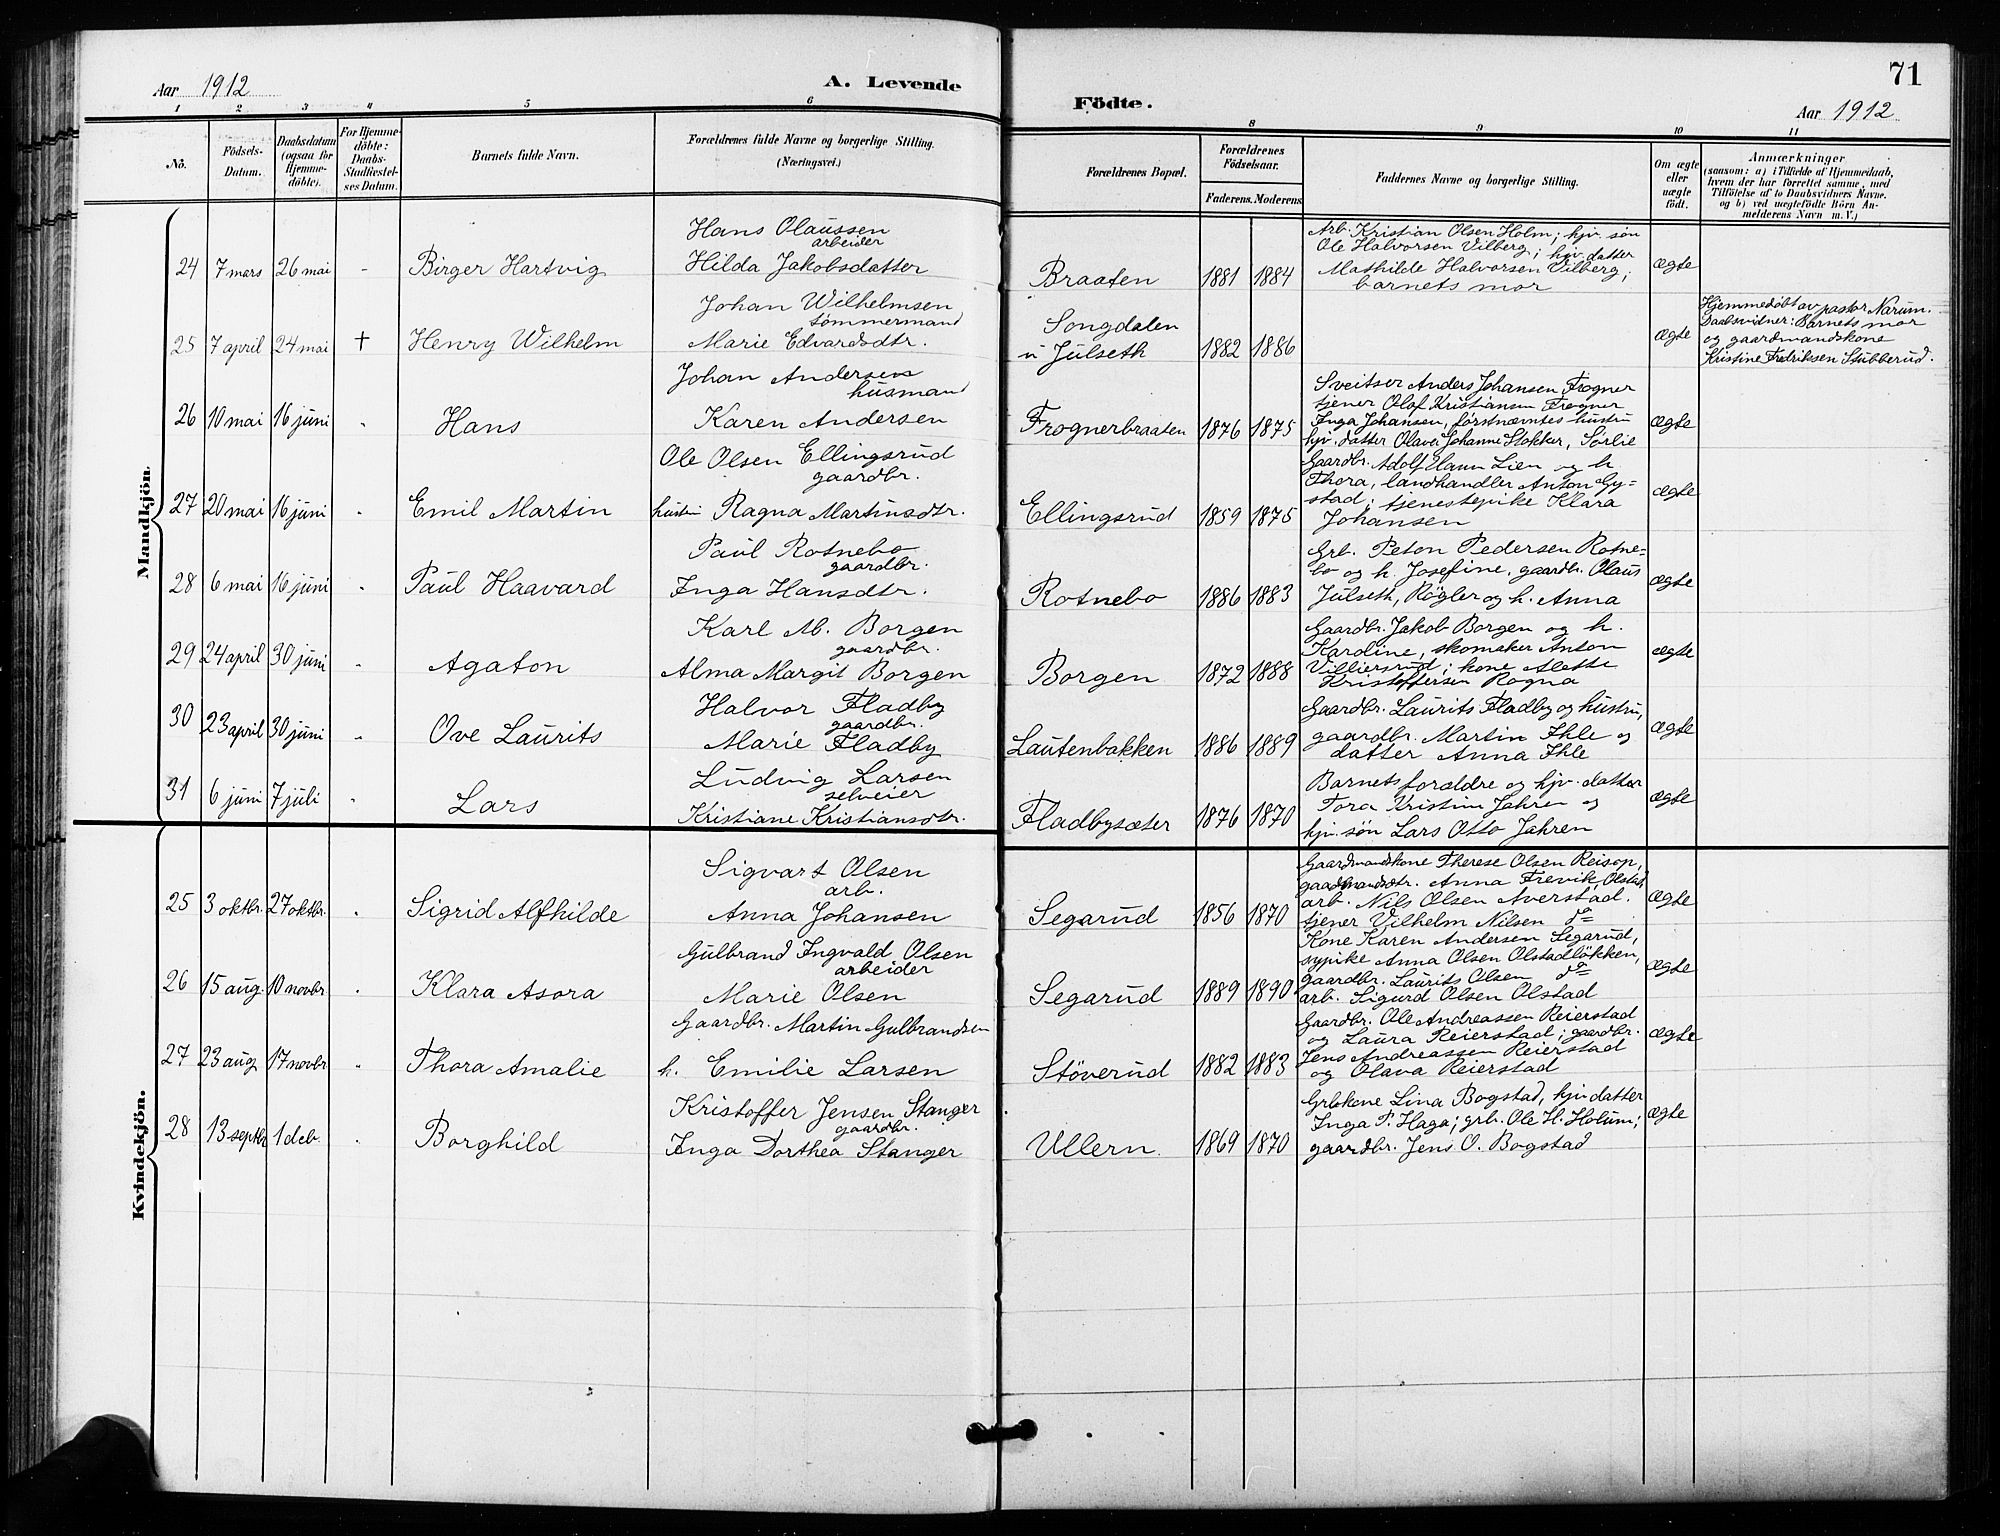 Aar 1912
A. Levende
Födte.
71
Aar 1912
1 2 3 4 5 6 8 9 10 11
Nö.
Födsels-
Datum.
Daabsdatum
(ogsaa for
Hjemme-
döbte).
For Hjemme-
döbte:
Daabs-
Stadfæstel-
ses Datum.
Barnets fulde Navn.
Forældrenes fulde Navne og borgerlige Stilling.
(Næringsvei.)
Forældrenes Bopæl.
Forældrenes
Födselsaar.
Faderens. Moderens.
Faddernes Navne og borgerlige Stilling.
Om ægte
eller
uægte
født.
Anmærkninger
(saasom: a) i Tilfælde af Hjemmedaab,
hvem der har forrettet samme, med
Tilföielse af to Daabsvidners Navne.
og b) ved uægtefödte Börn An-
melderens Navn m. V.)
Mandkjön.
24 7 mars 26 mai - Birger Hartvig
Hans Olaussen
arbeider
Hilda Jakobsdatter
Braaten 1881 1884
Arb. Kristian Olsen Holm; hjv. søn
Ole Halvorsen Vilberg; hjv. datter
Mathilde Halvorsen Vilberg;
barnets mor
ægte
25 7 april 24 mai † Henry Wilhelm
Johan Wilhelmsen
tømmermand
Marie Edvardsdtr.
Songdalen
u Julseth 1882 1886
ægte
Hjemmedøbt av pastor Narum.
Daabsvidner: Barnets mor
og gaardmandskone
Kristine Fredriksen Stubberud.
26 10 mai 16 juni " Hans
Johan Andersen
husmand
Karen Andersen
Frognerbraaten 1876 1875
Sveitser Anders Johansen, Frogner
tjener Olaf Kristiansen Frogner
Inga Johansen, førstnævntes hustru
hjv. datter Olave Johanne Stokker, Sørlie
ægte
27 20 mai 16 juni " Emil Martin
Ole Olsen Ellingsrud
gaardbr.
hustru Ragna Martinsdtr.
Ellingsrud 1859 1875
Gaardbr. Adolf Lien og h.
Thora, landhandler Anton Gy=
stad; tjenestepike Klara
Johansen
ægte
28 6 mai 16 juni " Paul Haavard
Paul Rotnebo
gaardbr.
Inga Hansdtr.
Rotnebo 1886 1883
Grb. Pedersen Rotne-
bo og h. Josefine, gaardbr. Olaus
Julseth, Røgler og h. Anna
ægte
29 24 april 30 juni " Agaton
Karl M. Borgen
gaardbr.
Alma Margit Borgen
Borgen 1872 1888
Gaardbr. Jakob Borgen og h.
Karoline, skomaker Anton
Villiersrud; kone Alette
Kristoffersen Rogna
ægte
30 23 april 30 juni " Ove Laurits
Halvor Fladby
gaardbr.
Marie Fladby
Lautenbakken 1886 1889
Gaardbr. Laurits Fladby og hustru,
gaardbr. Martin Ihle og
datter Anna Ihle
ægte
31 6 juni 7 juli " Lars
Ludvig Larsen
selveier
Kristiane Kristiansdtr.
Fladbysæter 1876 1870
Barnets forældre og hjv. datter
Tora Kristine Jahren og
hjv. søn Lars Otto Jahren
ægte
Kvindekjön.
25 3 oktbr. 27 oktbr. " Sigrid Alfhilde
Sigvart Olsen
arb.
Anna Johansen
Segarud 1856 1870
Gaardmandskone Therese Olsen Reisop,
gaardmandsdtr. Anna Frevik, Olstad,
arb. Nils Olsen Averstad.
tjener Vilhelm Nilsen do
ægte
26 15 aug. 10 novbr " Klara Asora
Gulbrand Ingvald Olsen
arbeider
Marie Olsen
Segarud 1889 1890
Kone Karen Andersen Segarud,
sypike Anna Olsen Olstadløkken,
gaardbr. Laurits Olsen do
arb. Sigurd Olsen Olstad
ægte
27 23 aug 17 novbr " Thora Amalie
Gaardbr. Martin Gulbrandsen
h. Emilie Larsen
Støverud 1882 1883
Gaardbr. Ole Andreassen Reierstad
og Laura Reierstad; gaardbr.
Jens Andreassen Reierstad
og Olava Reierstad
ægte
28 13 septbr 1 deb. " Borghild
Kristoffer Jensen Stanger
gaardbr.
Inga Dorthea Stanger
Ullern 1869 1870
Grb.kone Lina Bogstad, hjv. datter
Inga P. Haga; grb. Ole H. Holum;
gaardbr. Jens O. Bogstad
ægte